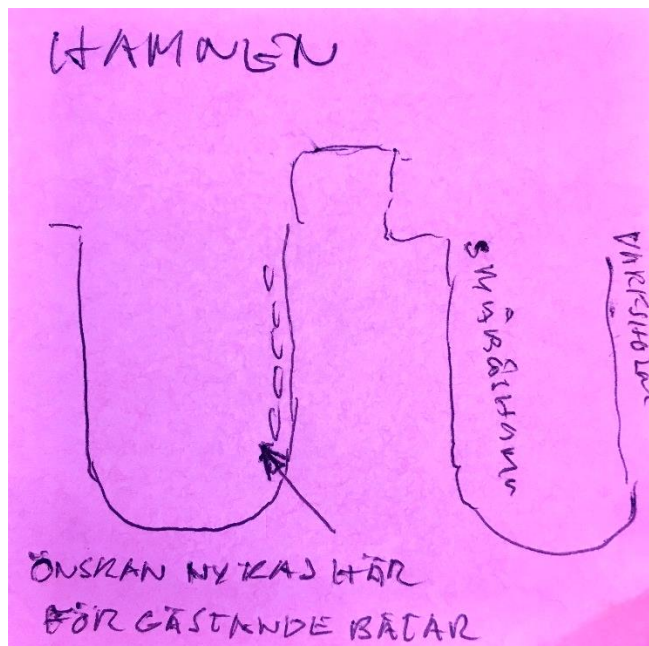 HAMNEN
SMÅBÅTSHAMN
ÖNSKAN NY KAJ HÄR
FÖR GÄSTANDE BÅTAR